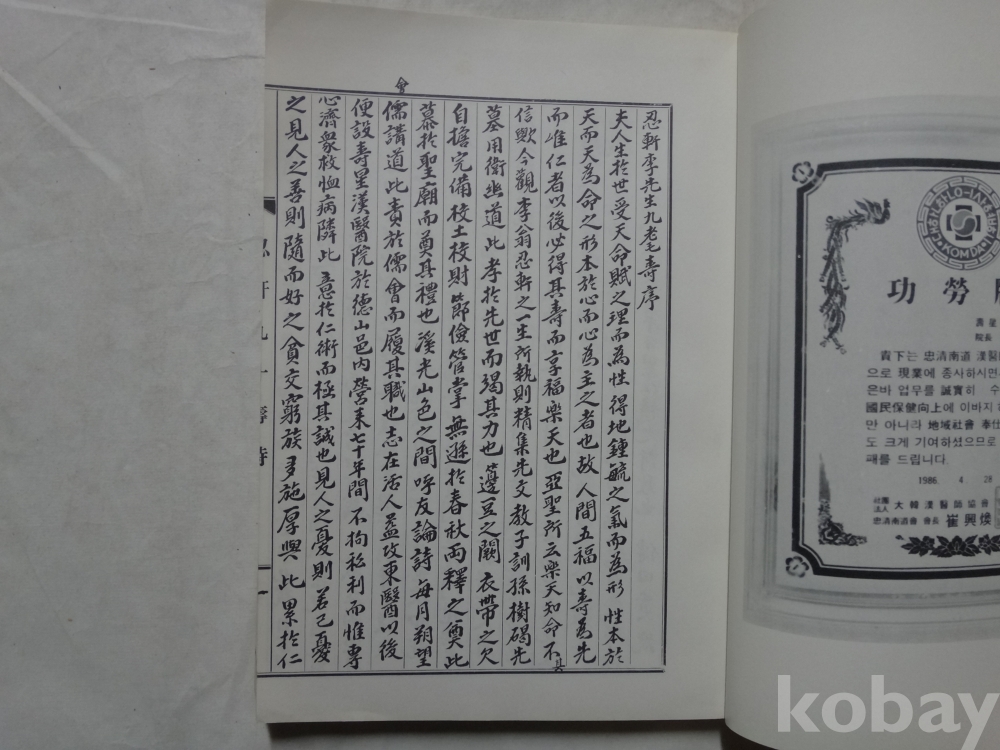 忍軒李先生九老毛壽序
夫人生於世受天命賦之理而為性 得地鍾毓之氣而為形 性本於
天而天為命之形本於心而心為主之者也故 人間五福以壽為先
而唯仁者以後必得其壽而享福樂天也亞聖所云樂天知命不其
信歟今觀李翁忍軒之一生所執則精集先文教子訓孫樹碣先
墓用衛幽道此孝於先世而竭其力也籩豆之闕 衣帶之欠
自擔完備校土校財 節儉管掌 無遜於春秋兩釋之奠此
慕於聖廟而奠其禮也溪光山色之間呼友論詩每月朔望
會儒講道此責於儒會而履其職也志在活人益攻東醫以後
便設壽星漢醫院於德山邑內營末七十年間 不拘私利而惟專
心濟衆救恤病隣此 意於仁術而極其誠也見人之憂則 若己憂
之見人之善則隨而好之貧交窮族多施厚與 此 累於仁
忍軒九十壽詩
一
功勞
壽星
院長
貴下는 忠淸南道 漢醫
으로 現業에 종사하시면
은바 업무를 誠實히 수
國民保健向上에 이바지
만 아니라 地域社會 奉仕
도 크게 기여하셨으므로
패를 드립니다.
1986. 4. 28
社團法人 大韓漢醫師協會
忠淸南道會 會長 崔興煥
kobay